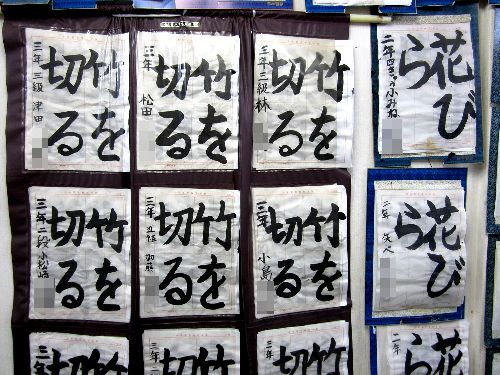 竹を
切る
三年 三級 津田
竹を
切る
三年 松田
竹を
切る
三年 三級 林
花び
ら
二年 四きゅう 小みね
竹を
切る
三年 二段 小松崎
竹を
切る
三年
竹を
切る
三年 小島
花び
ら
二年
竹を
切る
三年
竹を
切る
三年
竹を
切る
三年
花び
ら
二年